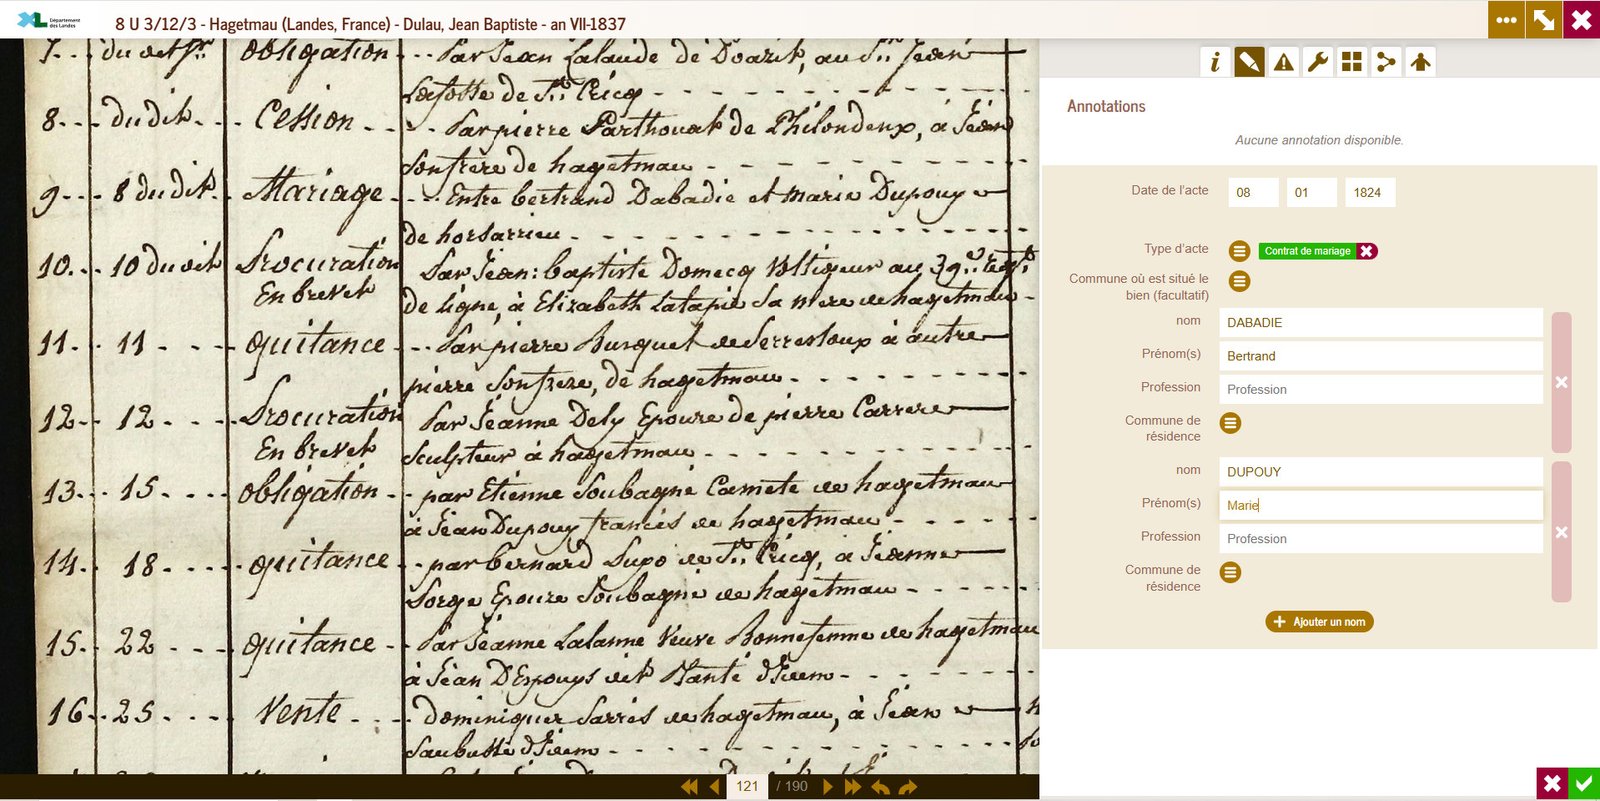 Département
des Landes
8 U 3/12/3 - Hagetmau (Landes, France) - Dulau, Jean Baptiste - an VII-1837
obligation - - Par Jean Lalaude de Doazit, au Sr. Jean
Lafosse de St. Cricq
8 - - - du dit - - - Cession - - - - Par pierre Parthouat de Philondenx, à Jean
Son frere de hagetmau
9 - - - 8 du dit Mariage - - - Entre bertrand Dabadie et marie Dupouy
de horsarrieu
10 - - 10 du dit Procuration Par Jean: baptiste Domecq Voltigeur au 39e. Regt.
En brevet de ligne, à Elizabeth Latapie Sa mere de hagetmau -
11 - 11 - - - quitance - - - Par pierre Busquet de Serresloux à autre
pierre Son frere, de hagetmau
12 - - 12 - - - Procuration Par Jeanne Dely Epouse de pierre Carrere
En brevet Sculpteur à hagetmau
13 - - 15 - - - - obligation - - par Etienne Soubagné de hagetmau
à Jean Dupouy francés de hagetmau
14 - - 18 - - - - quitance - - par bernard Lupo de St. Cricq, à Jeanne
Sorge Epouse Soubagné de hagetmau
15 - - 22 - - - - quitance - - Par Jeanne Lalanne Veuve Bonnefemme de hagetmau
à Jean dit d'Idem
16 - - 25 - - - - Vente - - - - dominique Sarres de hagetmau, à Jean
d'Idem
121 / 190
i
Annotations
Aucune annotation disponible.
Date de l'acte 08 01 1824
Type d'acte Contrat de mariage
Commune où est situé le
bien (facultatif)
nom DABADIE
Prénom(s) Bertrand
Profession Profession
Commune de
résidence
nom DUPOUY
Prénom(s) Marie
Profession Profession
Commune de
résidence
+ Ajouter un nom